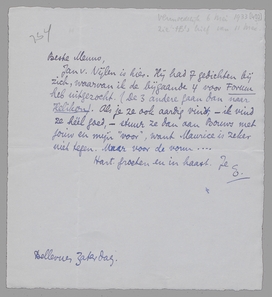 254
Beste Menno,
Jan v. Nijlen is hier. Hij had 7 gedichten bij
zich, waarvan ik de bijgaande 4 voor Forum
heb uitgezocht. (De 3 andere gaan dan naar
Helikon). Als je ze ook aardig vindt, – ik vind
ze héél goed, – stuur ze dan aan Bouws met
jouw en mijn "voor", want Maurice is zeker
niet tegen. Maar voor de vorm ....
Hart. groeten en in haast. Je
E.
Bellevue, Zaterdag.